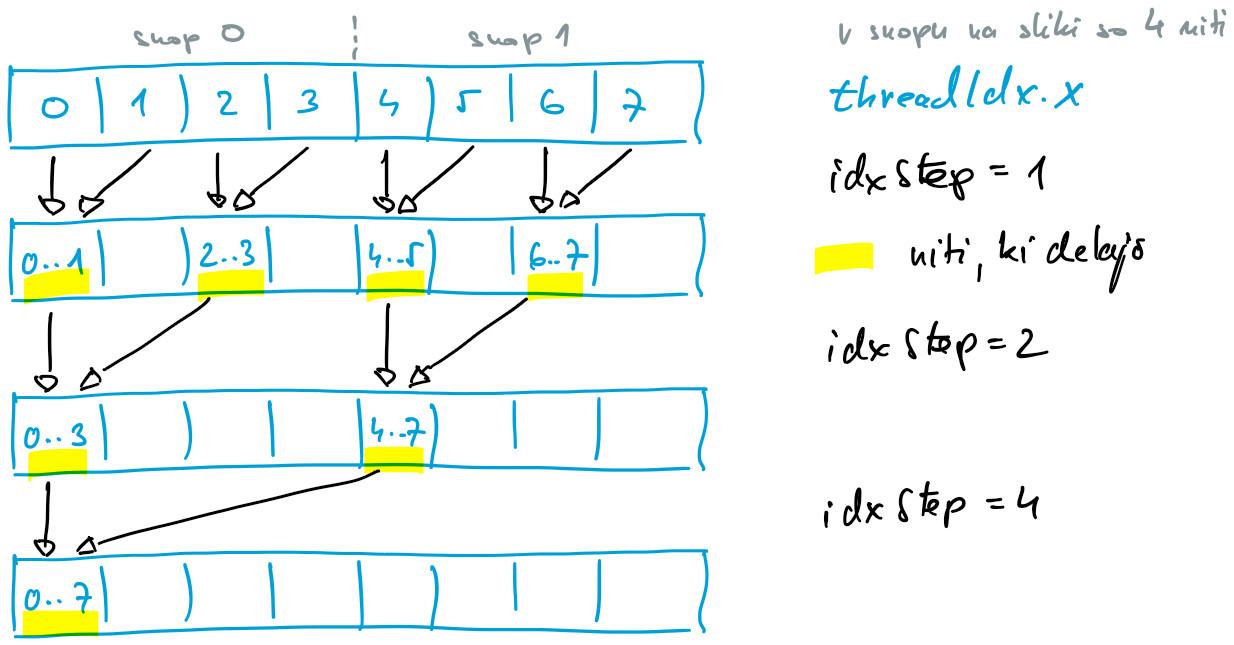 snop 0 snop 1 v snopu na sliki so 4 niti
0 1 2 3 4 5 6 7 threadIdx.x
idxStep = 1
0..1 2..3 4..5 6..7 niti, ki delajo
idxStep = 2
0..3 4..7
idxStep = 4
0..7